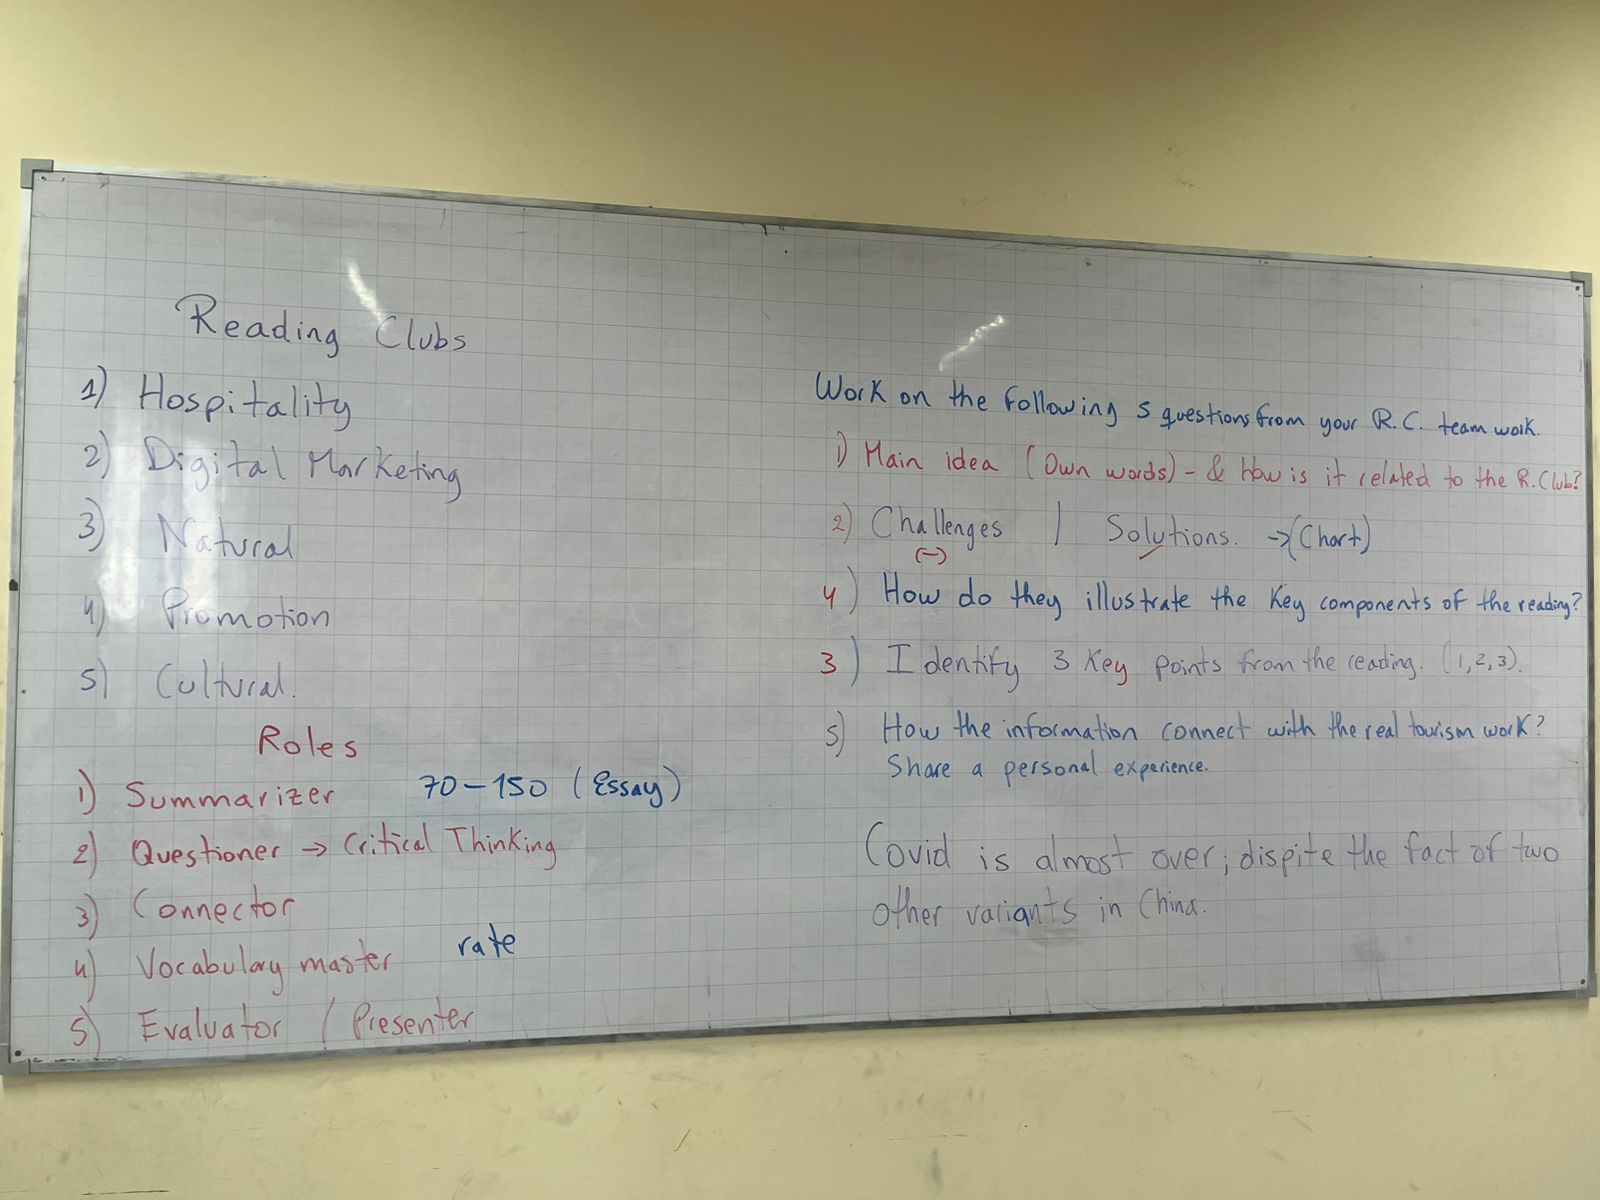 Reading Clubs
1) Hospitality
2) Digital Marketing
3) Natural
4) Promotion
5) Cultural.
Roles
1) Summarizer 70-150 (Essay)
2) Questioner → Critical Thinking
3) Connector
4) Vocabulary master rate
5) Evaluator / Presenter
Work on the following 5 questions from your R.C. team work.
1) Main idea (Own words) - & how is it related to the R.Club?
2) Challenges | Solutions. → (Chart)
(-)
4) How do they illustrate the Key components of the reading?
3) Identify 3 Key points from the reading. (1,2,3).
5) How the information connect with the real tourism work?
Share a personal experience.
Covid is almost over; dispite the fact of two
other variants in China.